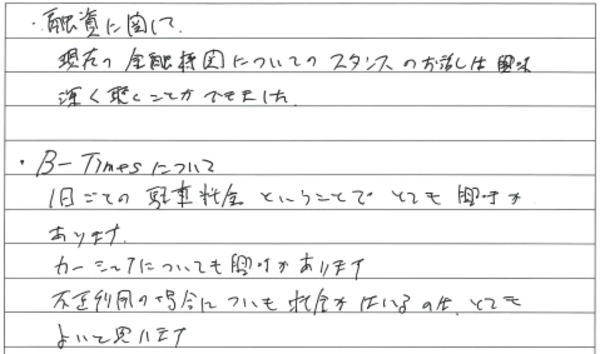 ・融資に関して
現在の金融機関についてのスタンスのお話しは興味
深く聴くことができました
・B-Timesについて
1日ごとの駐車料金ということでとても興味が
あります。
カーシェアについても興味があります
不正利用の場合についも料金がはいるのは、とても
よいと思います